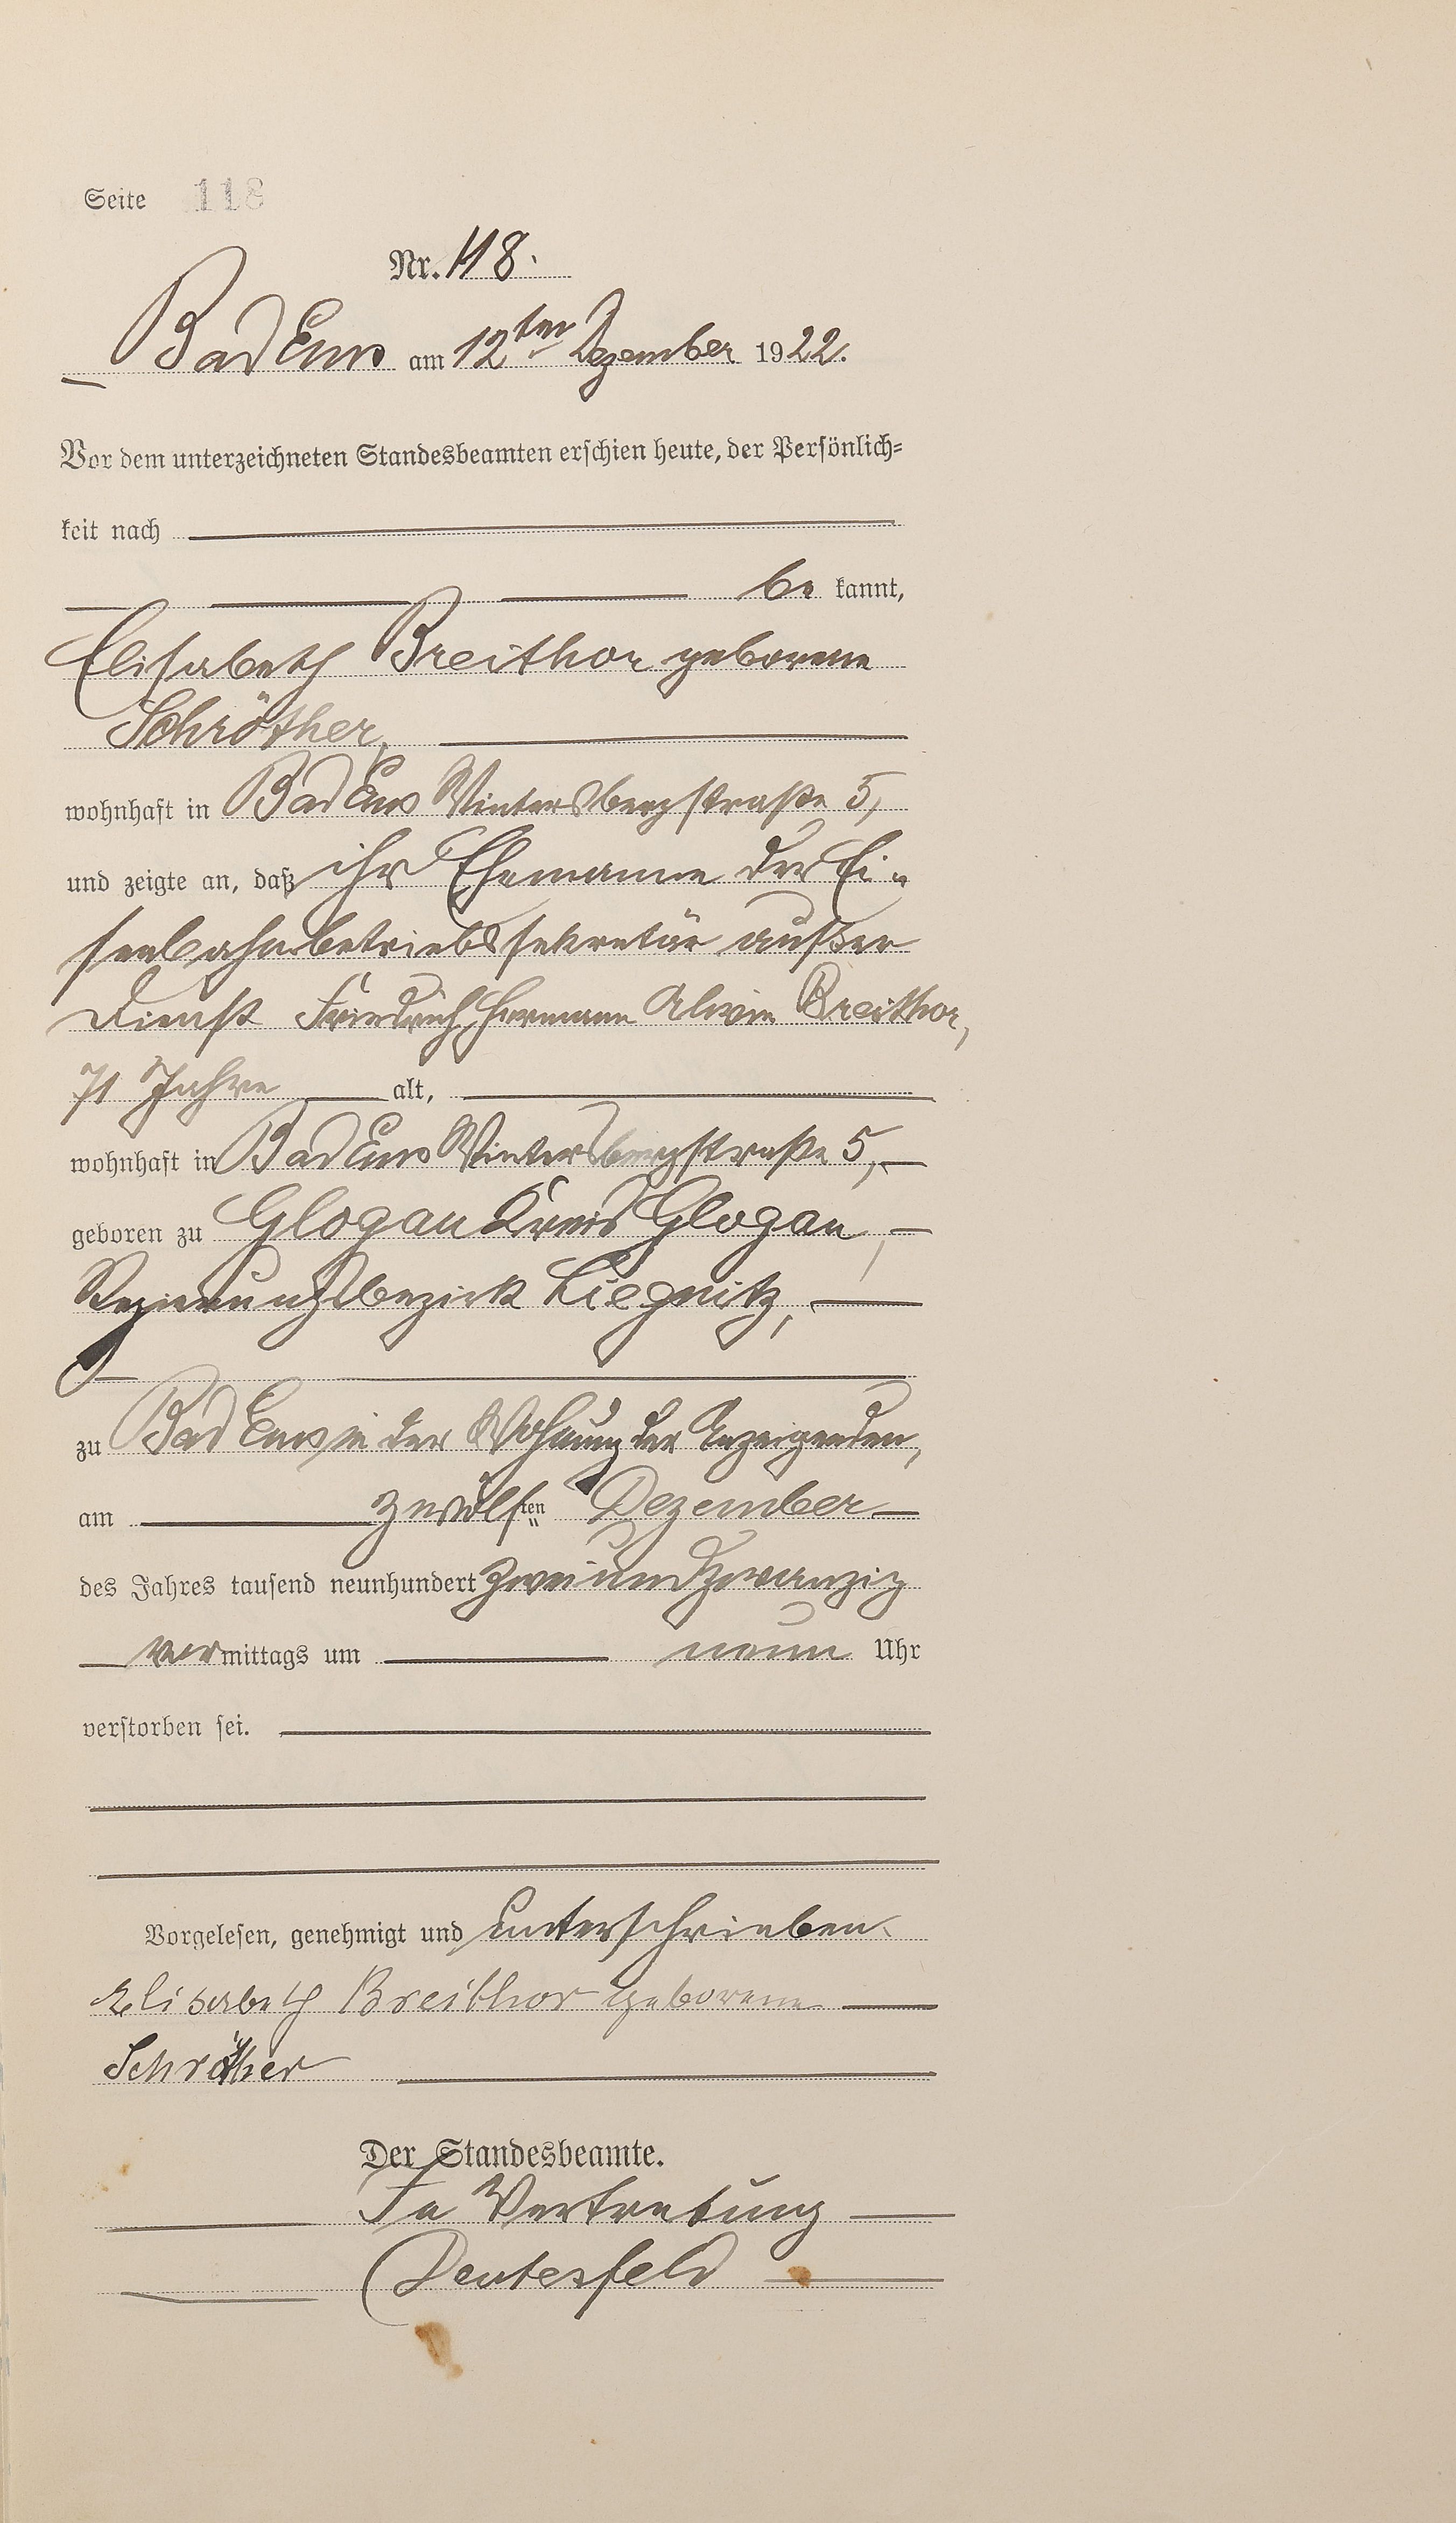 Seite 118
Nr. 118.
Bad Ems am 12ten Dezember 1922.
Vor dem unterzeichneten Standesbeamten erschien heute, der Persönlich-
keit nach
be kannt,
Elisabeth Breithor geborene
Schröther,
wohnhaft in Bad Ems Wintersbergstraße 5,
und zeigte an, daß ihr Ehemann der Ei-
senbahnbetriebssekretär außer
Dienst Friedrich Hermann Alwin Breithor,
71 Jahre alt,
wohnhaft in Bad Ems Wintersbergstraße 5,
geboren zu Glogau Kreis Glogau,
Regierungsbezirk Liegnitz,
zu Bad Ems in der Wohnung der Anzeigenden,
am zwölften Dezember
des Jahres tausend neunhundert zweiundzwanzig
vormittags um neun Uhr
verstorben sei.
Vorgelesen, genehmigt und unterschrieben.
Elisabeth Breithor geborene
Schröther
Der Standesbeamte.
In Vertretung
Deutesfeld